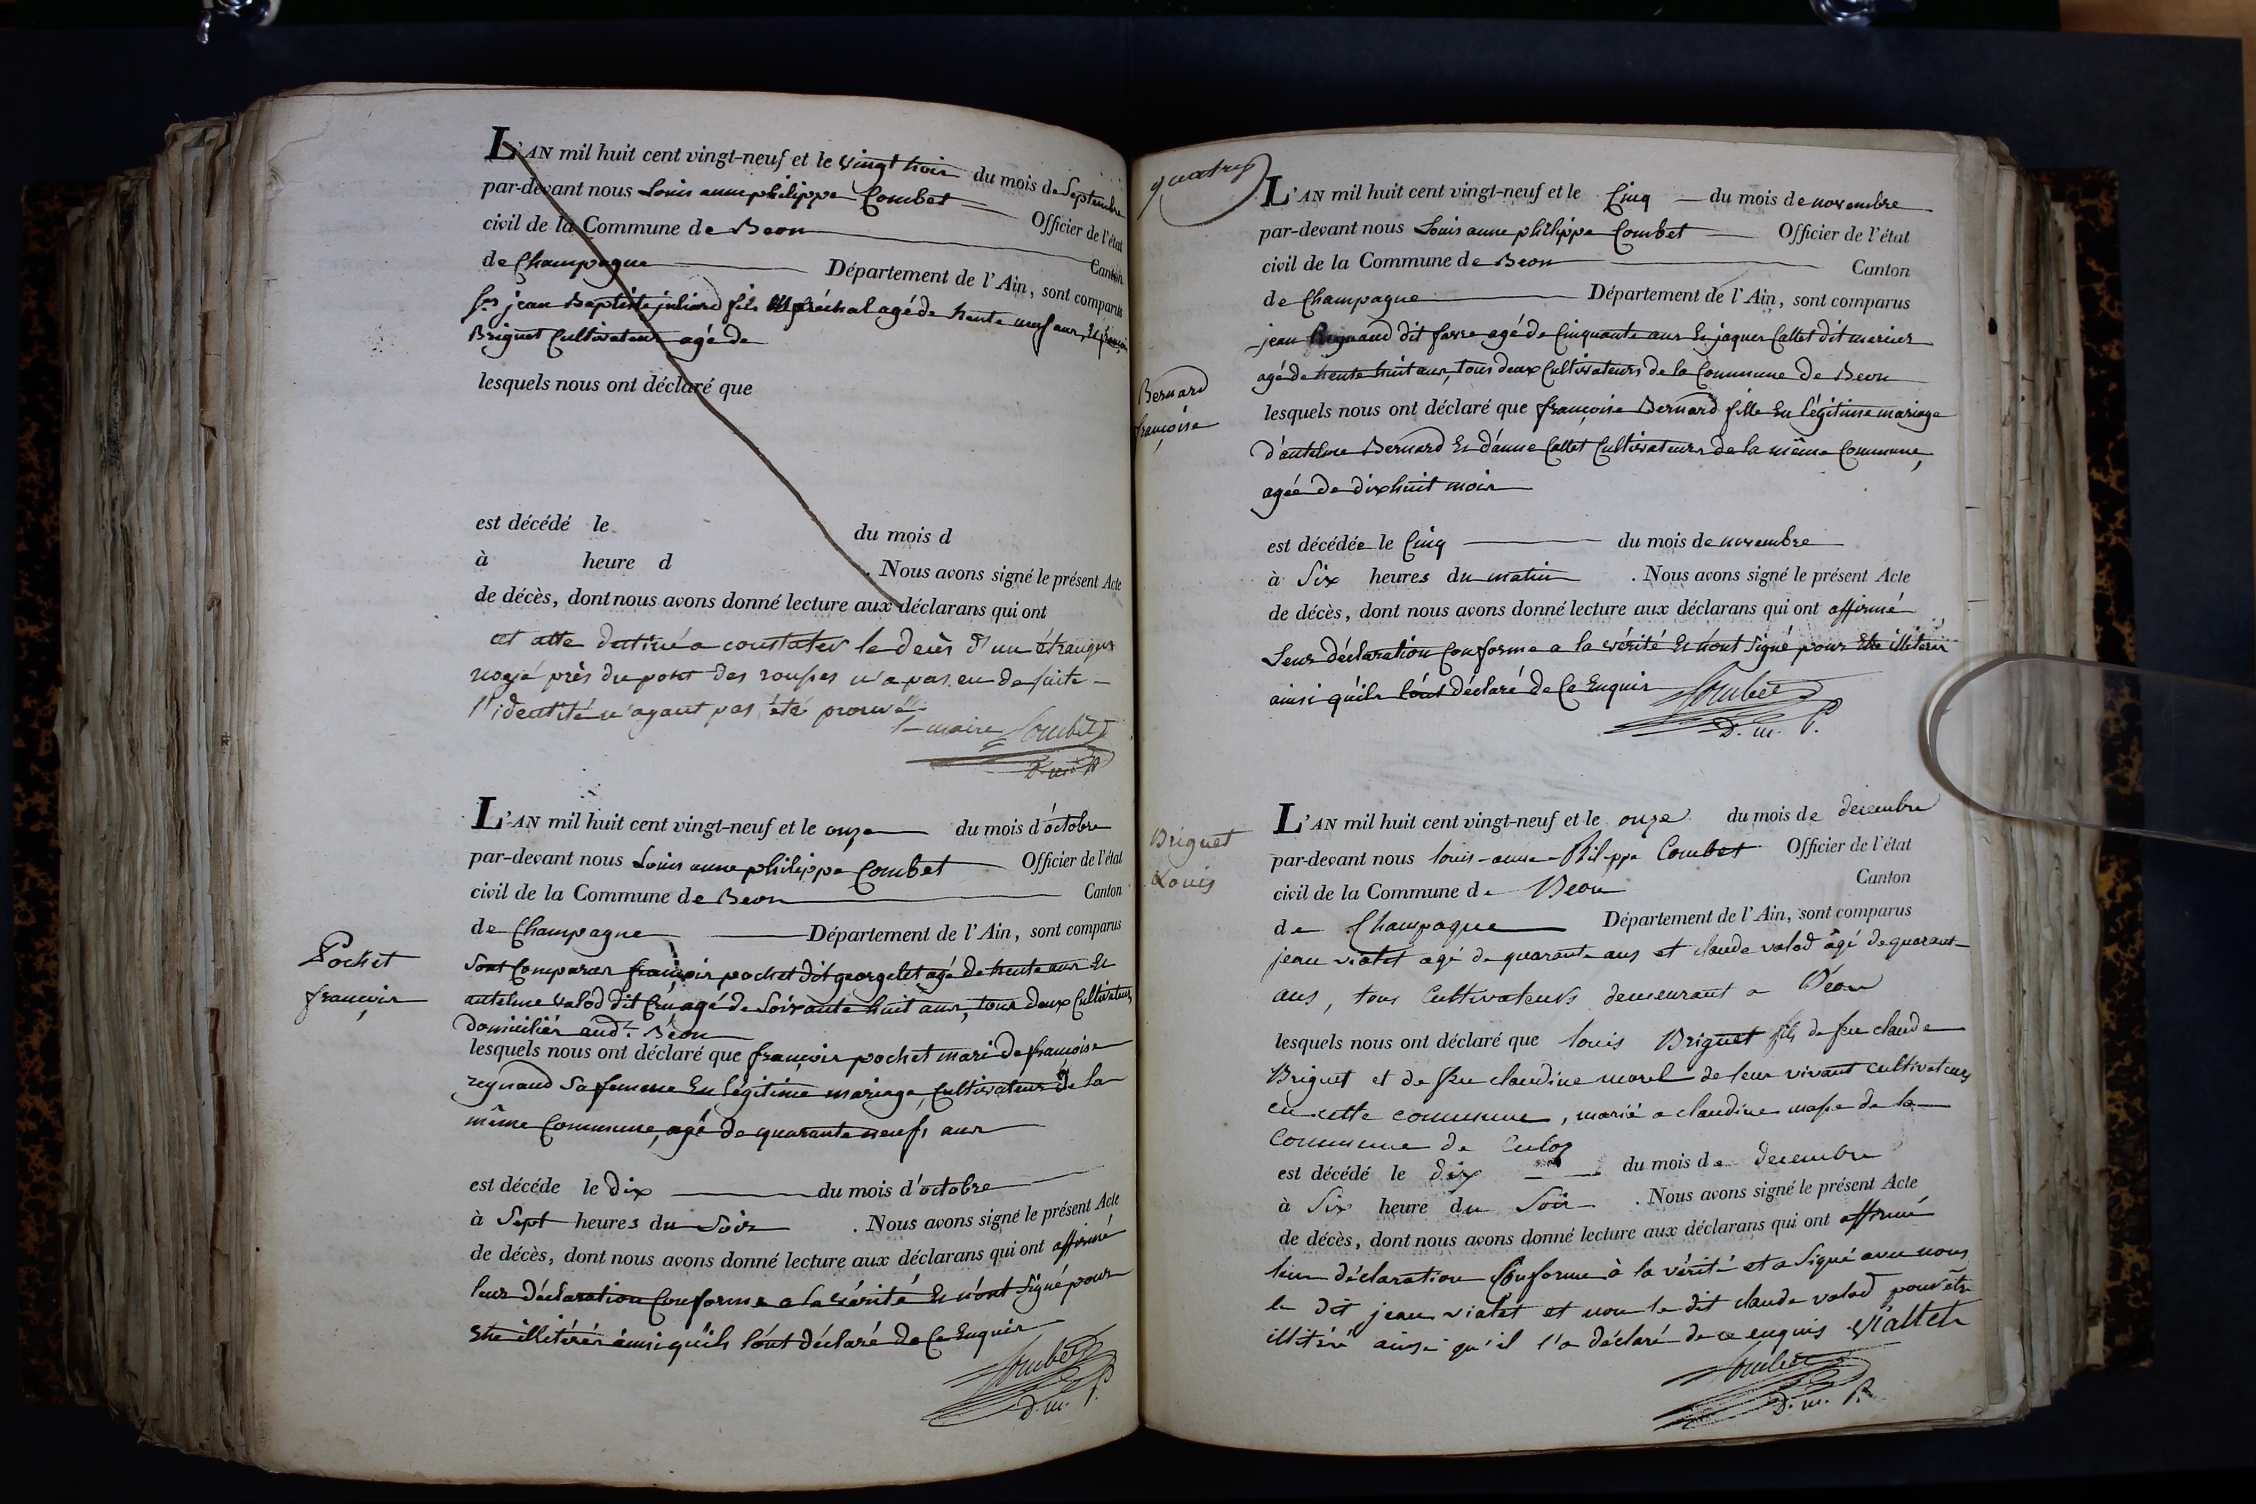 L'AN mil huit cent vingt-neuf et le vingt trois du mois de Septembre
par-devant nous Louis anne philippe Combet Officier de l'état
civil de la Commune de Beon Canton
de Champagne Département de l'Ain, sont comparus
jean Baptiste juliard fils Maréchal agé de trente neuf ans, Et françois
Briguet Cultivateur agé de
lesquels nous ont déclaré que
est décédé le du mois d
à heure d . Nous avons signé le présent Acte
de décès, dont nous avons donné lecture aux déclarans qui ont
cet acte destiné a constater le decès d'un étranger
noyé près du pont des rousses n'a pas eu de suite
l'identité n'ayant pas été prouvée
le maire Combet
D. m. P.
Pochet
françois
L'AN mil huit cent vingt-neuf et le onze du mois d'octobre
par-devant nous Louis anne philippe Combet Officier de l'état
civil de la Commune de Beon Canton
de Champagne Département de l'Ain, sont comparus
sont Comparus françois pochet dit georgelet agé de trente ans Et
antelme valod dit agé de Soixante huit ans, tous deux Cultivateurs
domiciliés aud.t Béon
lesquels nous ont déclaré que françois pochet mari de françoise
reynaud Sa femme En légitime mariage, Cultivateur de la
même Commune, agé de quarante neufs ans
est décéde le dix du mois d'octobre
à Sept heures du Soir . Nous avons signé le présent Acte
de décès, dont nous avons donné lecture aux déclarans qui ont affirmé
leur déclaration Conforme a la vérité Et n'ont Signé pour
Etre illitérés ainsi quils l'ont déclaré de Ce Enquis
Combet
D. m. P.
quatre
Bernard
françoise
L'AN mil huit cent vingt-neuf et le Cinq du mois de novembre
par-devant nous Louis anne philippe Combet Officier de l'état
civil de la Commune de Beon Canton
de Champagne Département de l'Ain, sont comparus
jean Reynaud dit favre agé de Cinquante ans Et jaques Callet dit mercier
agé de trente huit ans, tous deux Cultivateurs de la Commune de Beon
lesquels nous ont déclaré que françoise Bernard fille En légitime mariage
d'antelme Bernard Et d'anne Callet Cultivateurs de la même Commune,
agée de dixhuit mois
est décédée le Cinq du mois de novembre
à Six heures du matin . Nous avons signé le présent Acte
de décès, dont nous avons donné lecture aux déclarans qui ont affirmé
Leur déclaration Conforme a la vérité Et n'ont Signé pour Etre illitérés
ainsi quils l'ont déclaré de Ce Enquis Combet
D. m. P.
Briguet
Louis
L'AN mil huit cent vingt-neuf et le onze du mois de decembre
par-devant nous louis-anne-Philippe Combet Officier de l'état
civil de la Commune de Beon Canton
de Champagne Département de l'Ain, sont comparus
jean viatet agé de quarante ans et claude valod âgé de quarante
ans, tous Cultivateurs demeurant a Béon
lesquels nous ont déclaré que louis Briguet fils de feu claude
Briguet et de feu claudine morel de leur vivant cultivateurs
en cette commune, marié a claudine masse de la
Commune de Culoz
est décédé le dix du mois de decembre
à Six heure du Soir . Nous avons signé le présent Acte
de décès, dont nous avons donné lecture aux déclarans qui ont affirmé
leur déclaration Conforme à la vérité et a Signé avec nous
le dit jean viatet et non le dit claude valod pour être
illitéré ainsi qu'il l'a déclaré de ce enquis Viattet
Combet
D. m. P.